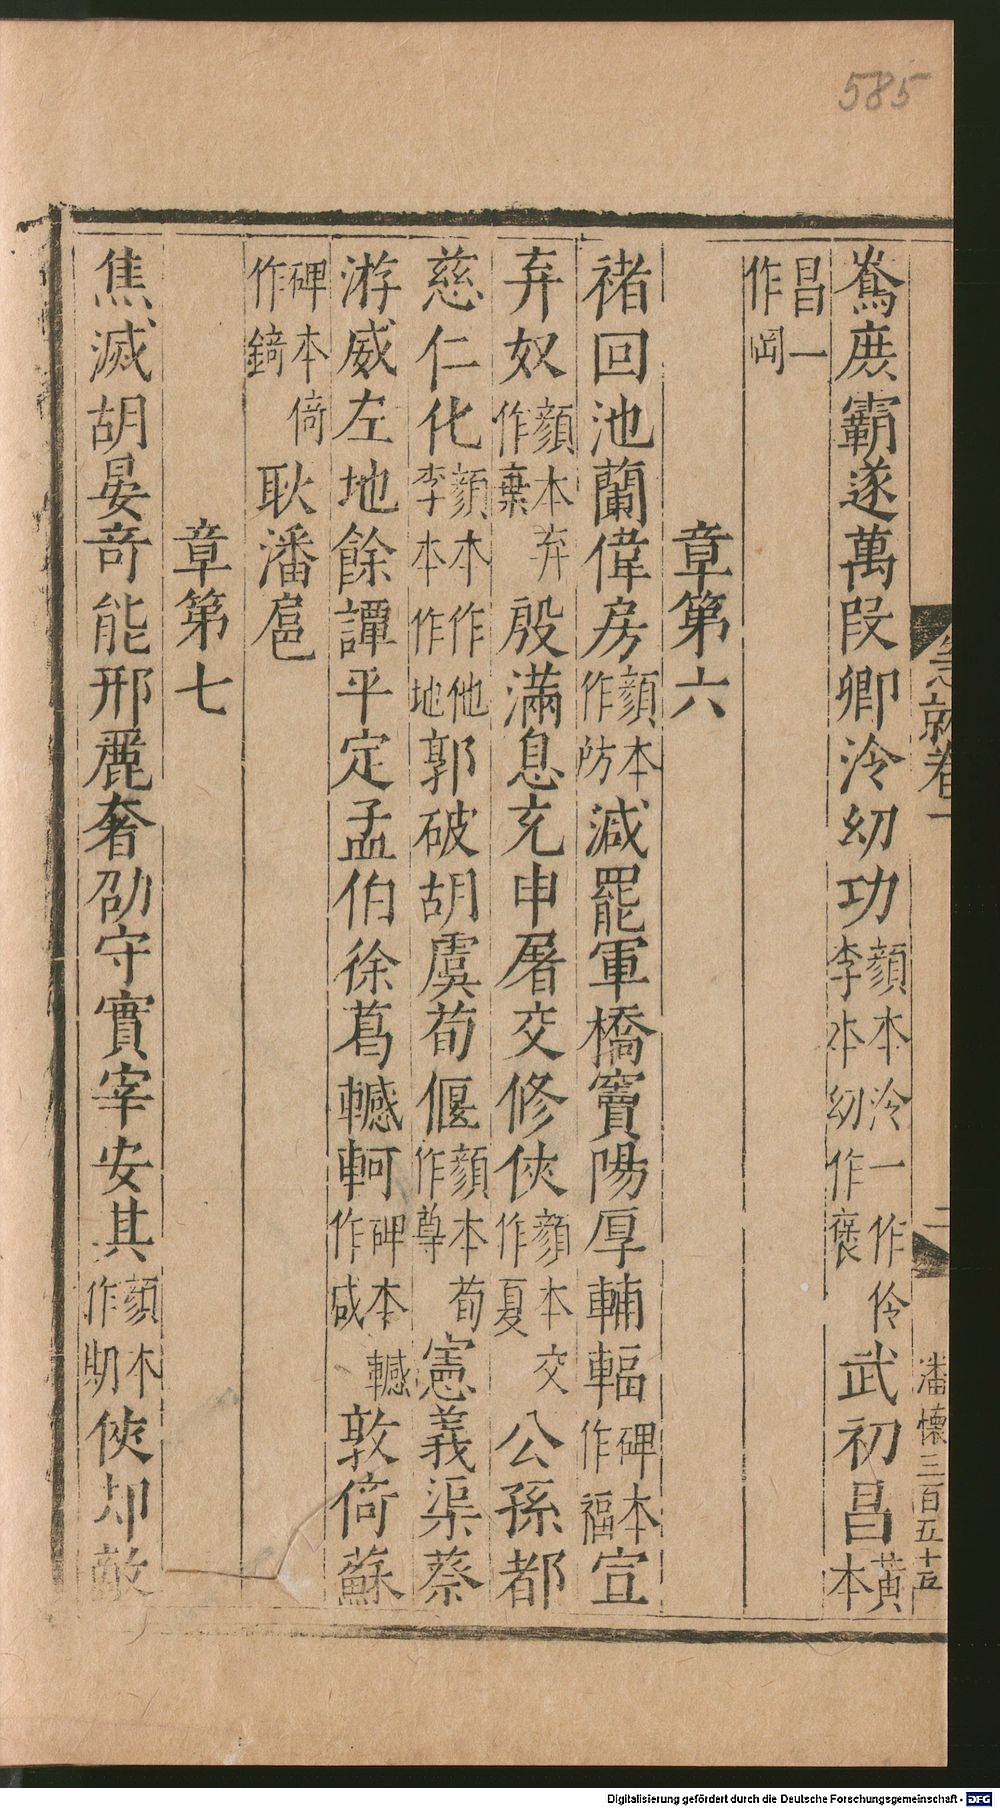 585
急就卷一
二
潘懐三百五十𠮷
鴦庶霸遂萬段卿泠幼功顏本泠一作伶李本幼作褒武初昌黃本
昌一作岡
章第六
褚回池蘭偉房顏本作防減罷軍橋竇陽厚輔輻碑本作福宣
弃奴顏本弃作棄殷滿息充申屠交脩俠顏本交作夏公孫都
慈仁化顏本作他李本作地郭破胡虞荀偃顏本荀作尊憲義渠蔡
游威左地餘譚平定孟伯徐葛轗軻碑本轗作咸敦倚蘇
碑本倚作錡耿潘扈
章第七
焦滅胡晏奇能邢麗奢劭守實宰安其顏本作期俠却敵
Digitalisierung gefördert durch die Deutsche Forschungsgemeinschaft - DFG